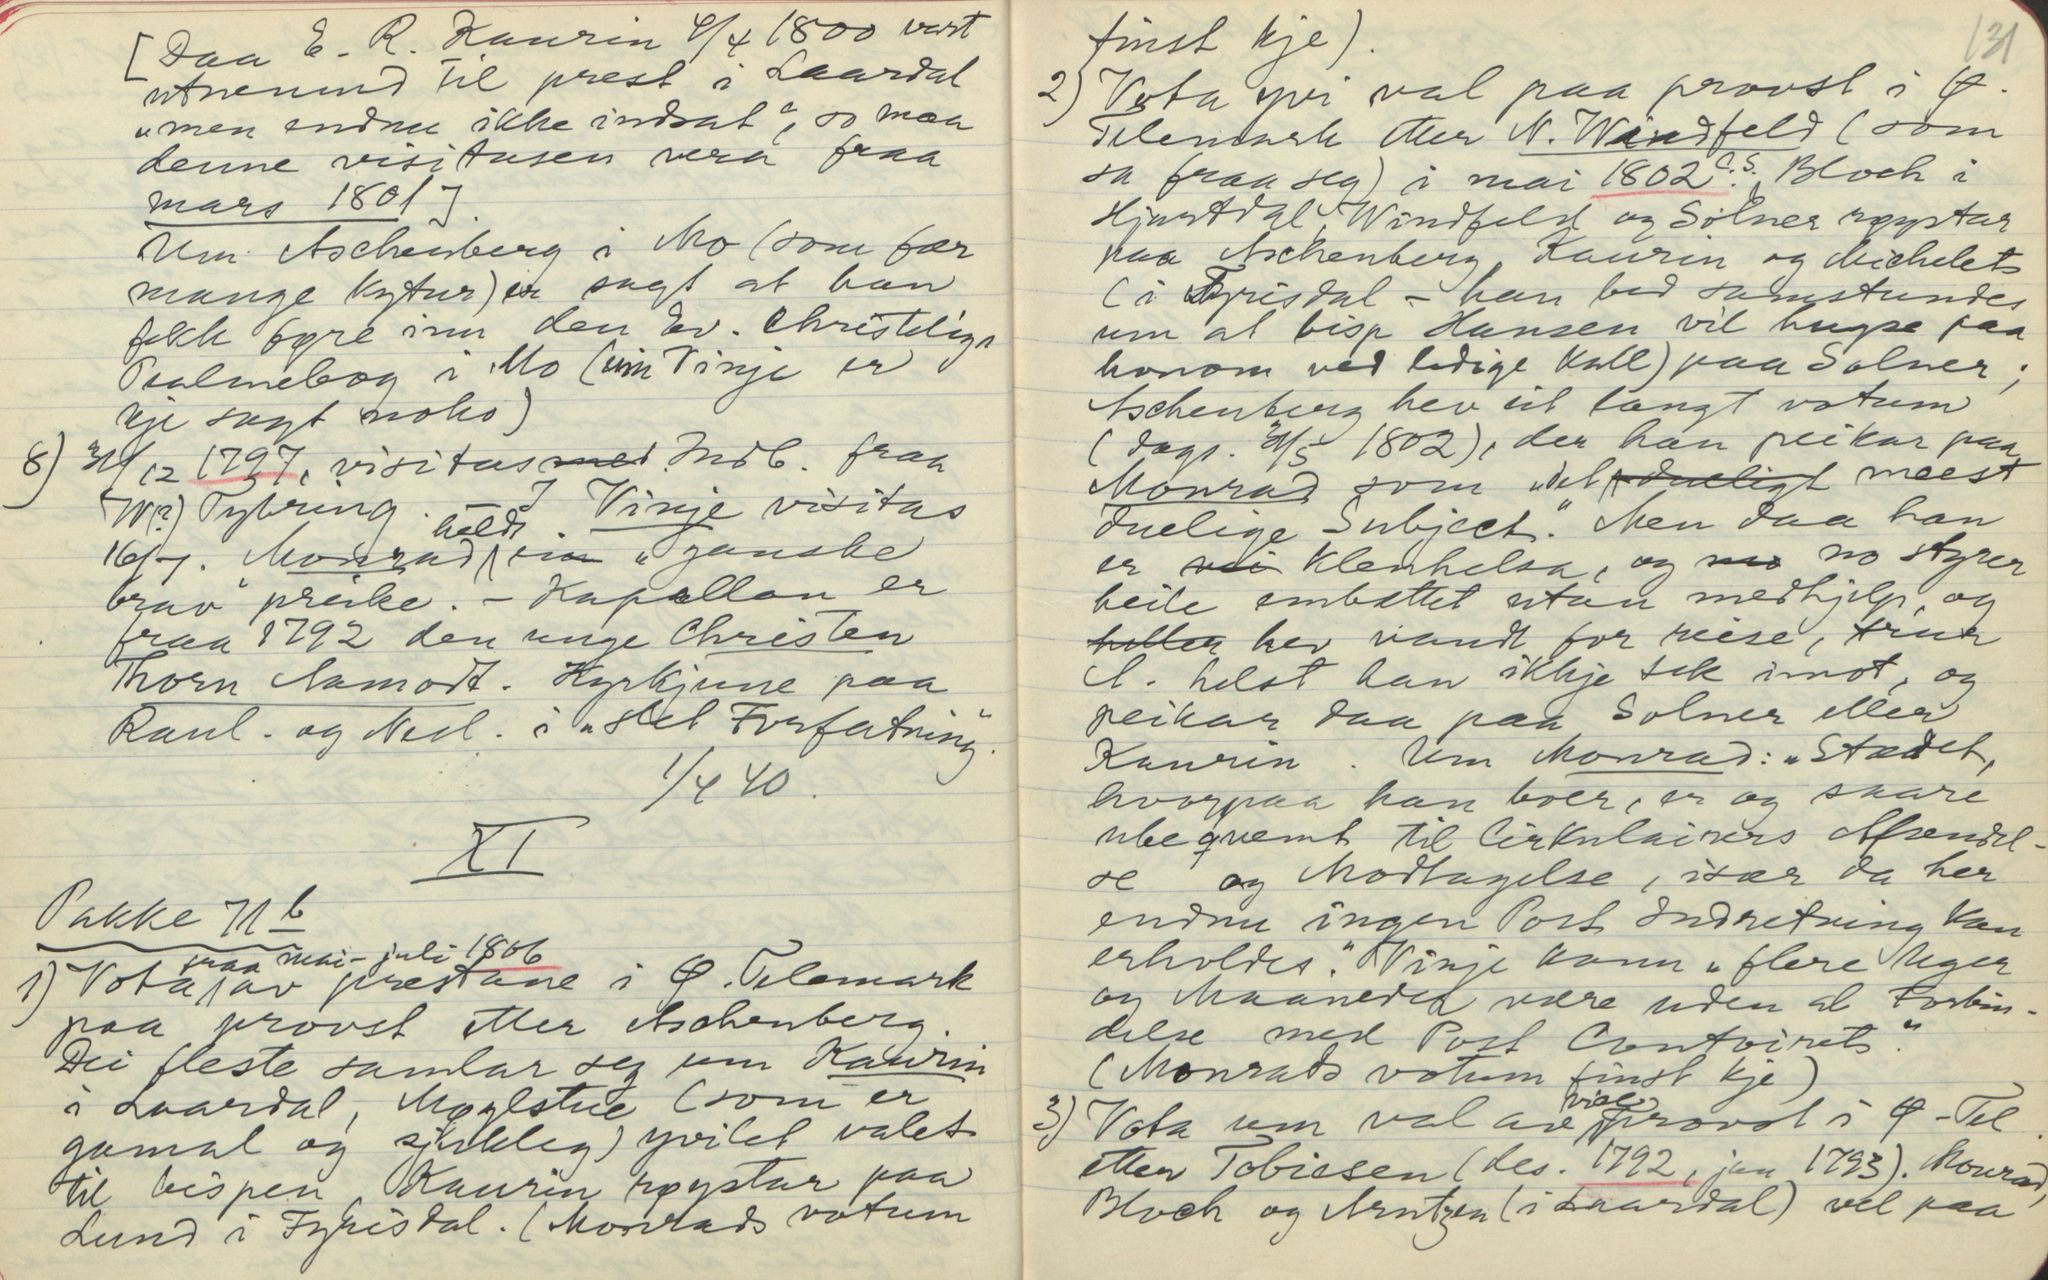 [Daa E. R. Kaurin 4/4 1800 vart
utnemnd til prest i Laardal
„men endnu ikke indsat", so maa
denne visitasen vera fraa
mars 1801].
Um Aschenberg i Mo (som fær
mange kytur) er sagt at han
fekk føre inn den Ev. Christelige
Psalmebog i Mo (um Vinje er
kje sagt noko)
8) 31/12 1797, visitas med Indb. fraa
[W(?) Tybring. – I Vinje visitas
16/7. Monrad heldt ein „ganske
brav" preike. – Kapellan er
fraa 1792 den unge Christen
Thorn Aamodt. Kyrkjune paa
Raul. og Nesl. i „slet Forfatning".
1/4 40.
XI
Pakke 71 b
fraa mai – juli 1806
1) Vota av prestane i Ø. Telemark
paa provst etter Aschenberg.
Dei fleste samlar seg um Kaurin
i Laardal, Møylstue (som er
gamal og sjukleg) yvilet valet
til bispen, Kaurin røystar paa
Lund i Fyrisdal. (Monrads votum
131
finst kje).
2) Vota yvi val paa provst i Ø.
Telemark etter N. Windfeld (som
sa fraa seg) i mai 1802. C. S. Bloch i
Hjartdal, Windfeld og Solner røystar
paa Aschenberg, Kaurin og Michelets
(i Fyrisdal – han bed samstundes
um at bisp Hansen vil hugse paa
honom ved ledige kall) paa Solner;
Aschenberg hev eit langt votum
(dags. 31/5 1802), der han peikar paa
Monrad som „det dueligt meest
duelige Subject." Men daa han
er vei klenhelsa, og no no styrer
heile embættet utan medhjelp, og
heller hev vandt for reise, trur
A. helst han ikkje tek imot, og
peikar daa paa Solner eller
Kaurin. Um Monrad: „Stædet,
hvorpaa han boer, er og saare
ubeqvemt til Cirkulairers Afsendel-
se og Modtagelse, især da her
endnu ingen Post Indretning kan
erholdes." Vinje kann „flere Uger
og Maaneder være uden al Forbin-
delse med Post Contoirets".
(Monrads votum finst kje)
3) Vota um val av vice provst i Ø-Tel.
etter Tobiesen (des. 1792, jan 1793). Monrad,
Bloch og Arntzen (i Laardal) vel paa